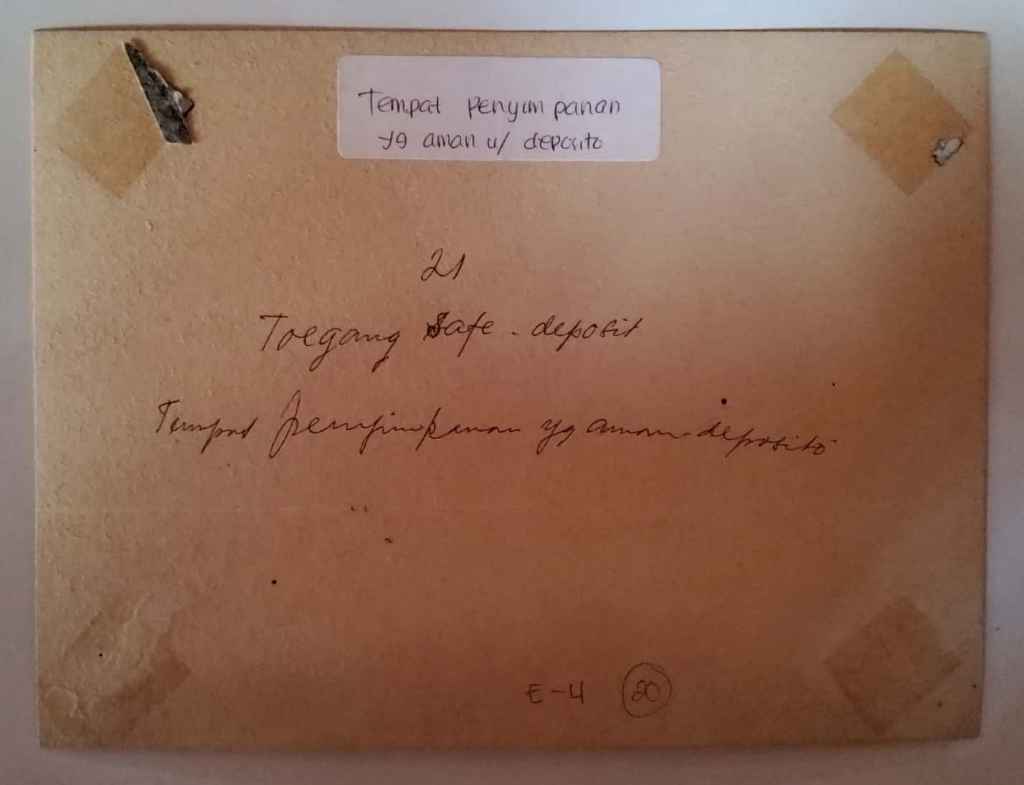 Tempat penyimpanan
yg aman u/ deposito
21
Toegang Safe-deposit
Tempat penyimpanan yg aman-deposito
E-4 50